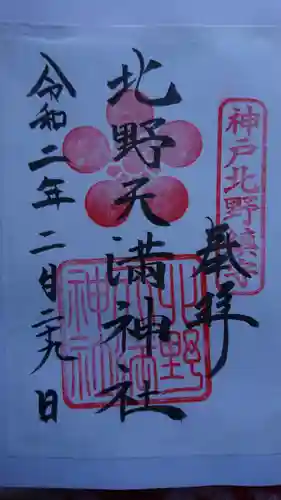 神戸北野鎮守
奉拝
北野天満神社
北野天満神社
令和二年二月二九日